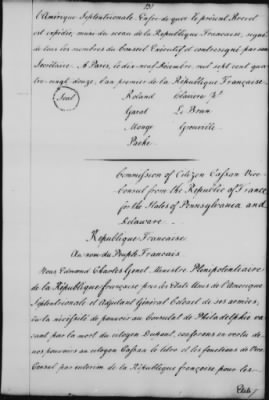 131
l'Amérique Septentrionale. Enfoi de quoi le présent Brevet
est expédié, muni du sceau de la République Francaise, signé
de tous les membres du Conseil Exécutif et contresigné par son
Secrétaire. A Paris, le dix-neuf Novembre mil sept cent qua
tre-vingt douze, l'an premier de la République Française
Seal
Roland Claviere
Garat Le Brun
Monge Grouvelle
Pache
Commission of Citizen Cassan Vice
Consul from the Republic of France
for the States of Pennsylvania and
Delaware.
République Francaise
Au nom du Peuple Francais
Nous Edmond Charles Genet Ministre Plénipotentiaire
de la République française près les Etats Unis de l'Amerique
Septentrionale et Adjutant Général Colonel de ses armées,
vu la nécessité de pourvoir au Consulat de Philadelphie va
cant par la mort du citoyen Dupont, conferons en vertu de
nos pouvoirs au citoyen Cassan le titre et les fonctions de Vice
Consul par interim de la République française pour les
Etats